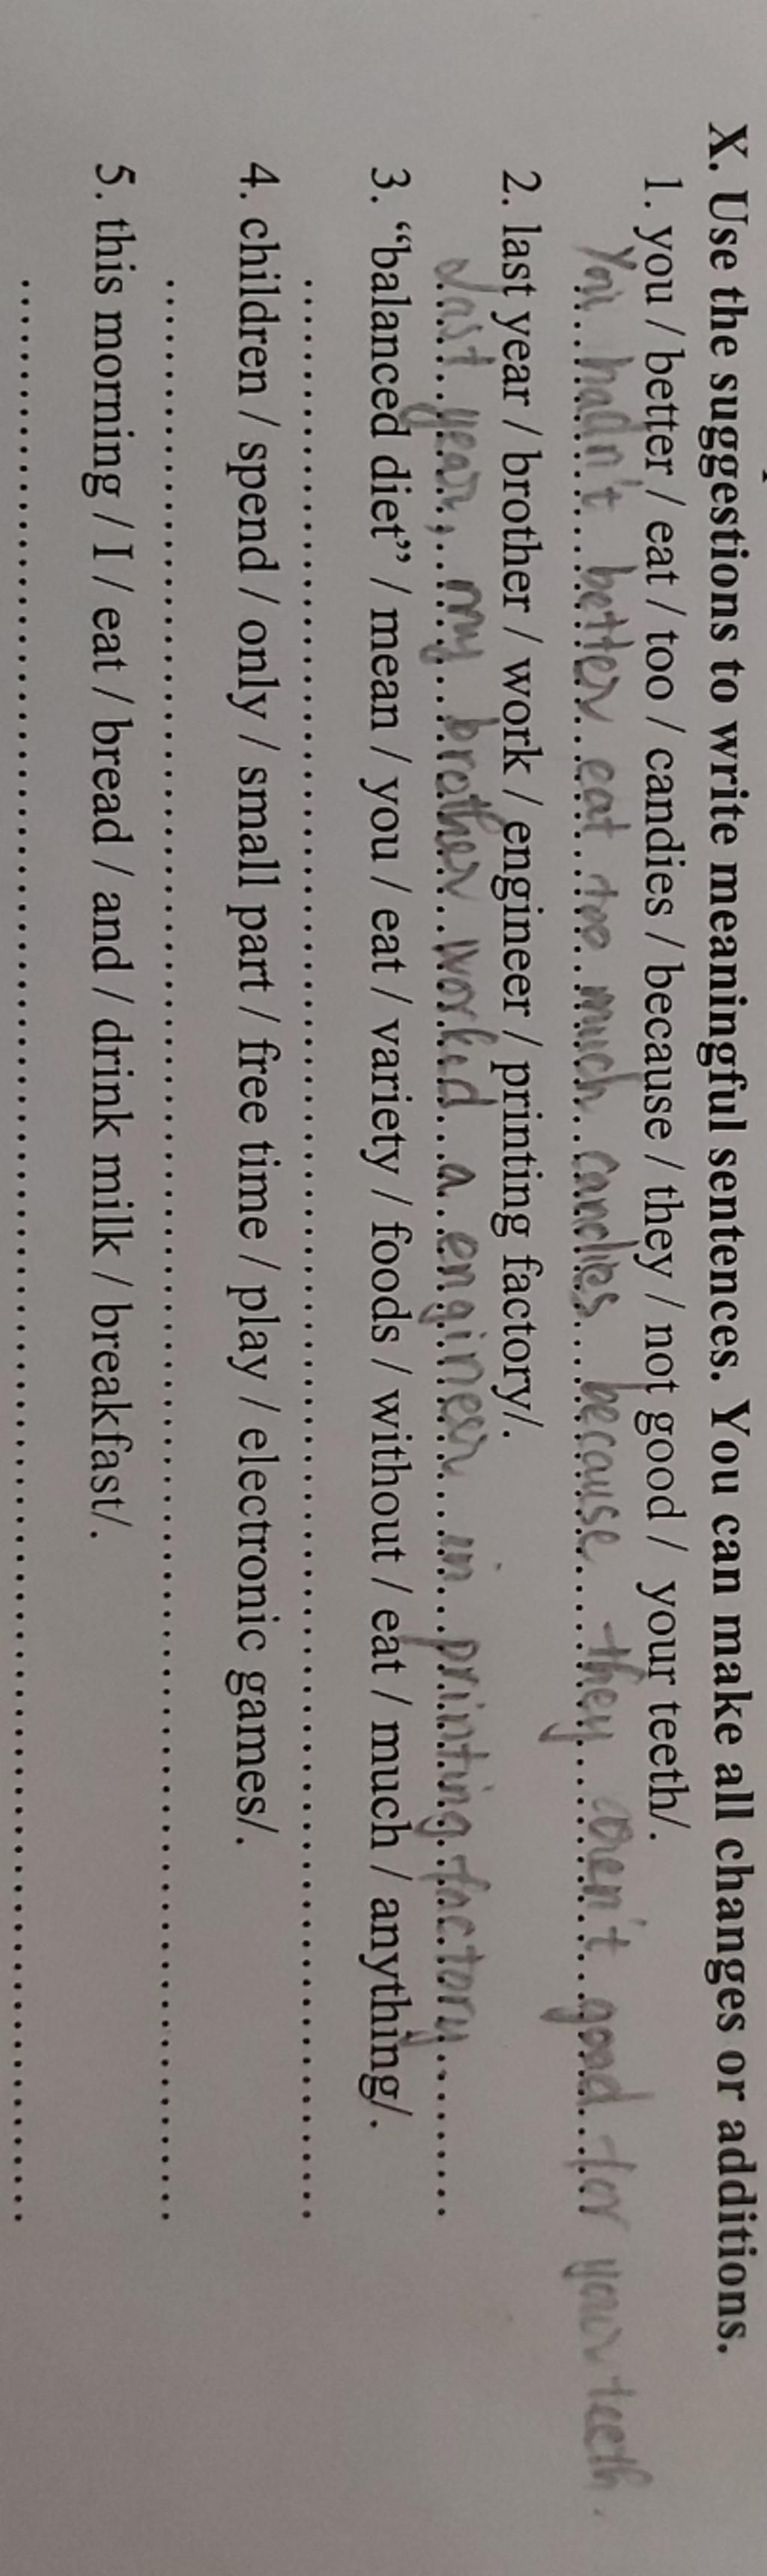 X. Use the suggestions to write meaningful sentences. You can make all changes or additions.
1. you / better / eat / too / candies / because / they / not good / your teeth/.
You hadn't better eat too much candies because they aren't good for your teeth.
2. last year / brother / work / engineer / printing factory/.
Last year, my brother worked a engineer in printing factory
3. "balanced diet" / mean / you / eat / variety / foods / without / eat / much / anything/.
4. children / spend / only / small part / free time / play / electronic games/.
5. this morning / I / eat / bread / and / drink milk / breakfast/.